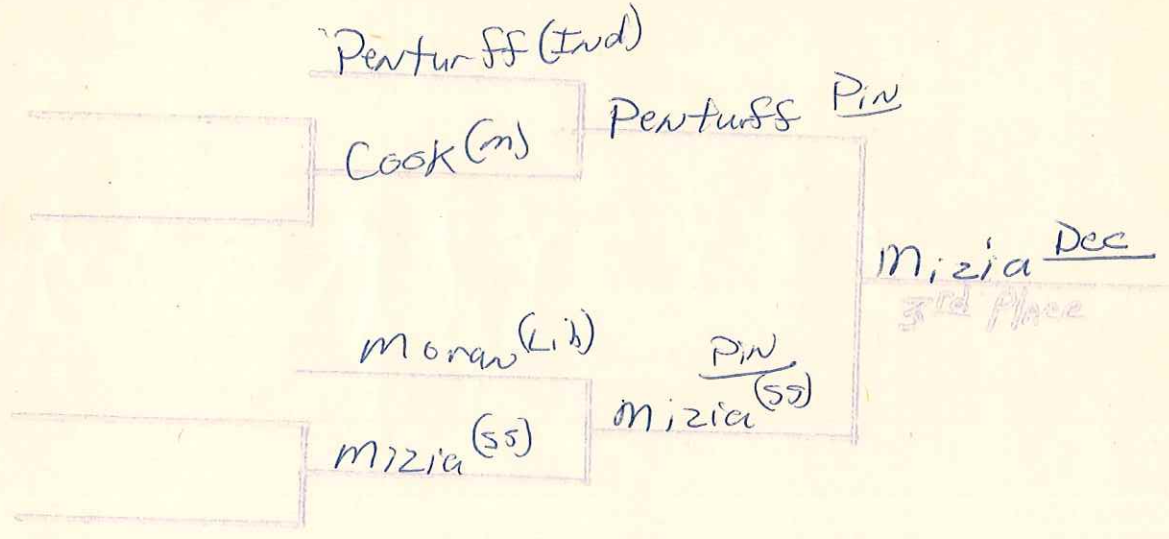 Penturff (Ind)
Cook (m)
Penturff Pin
Mizia Dec
3rd Place
Moran (Lib)
Mizia (SS)
Pin
Mizia (SS)